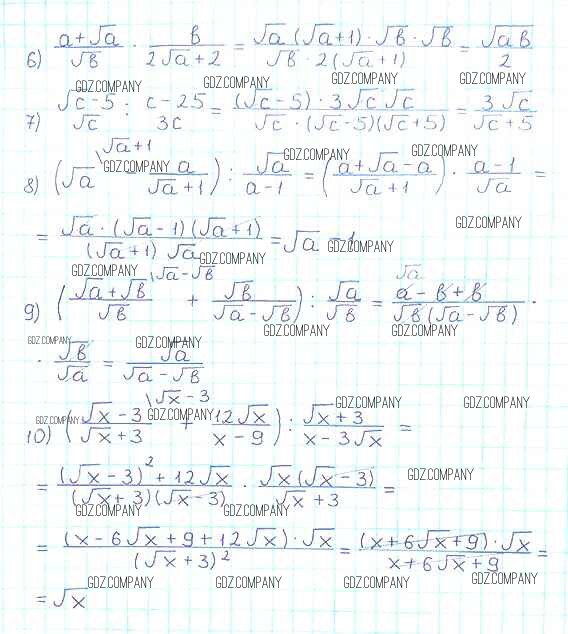 6) (a+√a)/√b · b/(2√a+2) = (√a (√a+1) · √b · √b)/(√b · 2(√a+1)) = √ab/2
GDZ.COMPANY GDZ.COMPANY GDZ.COMPANY GDZ.COMPANY
7) (√c-5)/√c : (c-25)/3c = ((√c-5) · 3√c √c)/(√c · (√c-5)(√c+5)) = 3√c/(√c+5)
\√a+1
GDZ.COMPANY GDZ.COMPANY GDZ.COMPANY
8) (√a - a/(√a+1)) : √a/(a-1) = ((a+√a-a)/(√a+1)) · (a-1)/√a =
GDZ.COMPANY
= (√a · (√a-1)(√a+1))/((√a+1) √a) = √a - 1
GDZ.COMPANY GDZ.COMPANY GDZ.COMPANY
\√a-√b √a
9) ((√a+√b)/√b + √b/(√a-√b)) : √a/√b = (a-b+b)/(√b(√a-√b)) ·
GDZ.COMPANY GDZ.COMPANY
GDZ.COMPANY GDZ.COMPANY
· √b/√a = √a/(√a-√b)
\√x-3
GDZ.COMPANY GDZ.COMPANY GDZ.COMPANY GDZ.COMPANY
10) ((√x-3)/(√x+3) + 12√x/(x-9)) : (√x+3)/(x-3√x) =
GDZ.COMPANY
= ((√x-3)²+12√x)/((√x+3)(√x-3)) · (√x(√x-3))/(√x+3) =
GDZ.COMPANY GDZ.COMPANY
= ((x-6√x+9+12√x)·√x)/(√x+3)² = ((x+6√x+9)·√x)/(x+6√x+9) =
GDZ.COMPANY GDZ.COMPANY GDZ.COMPANY GDZ.COMPANY
= √x